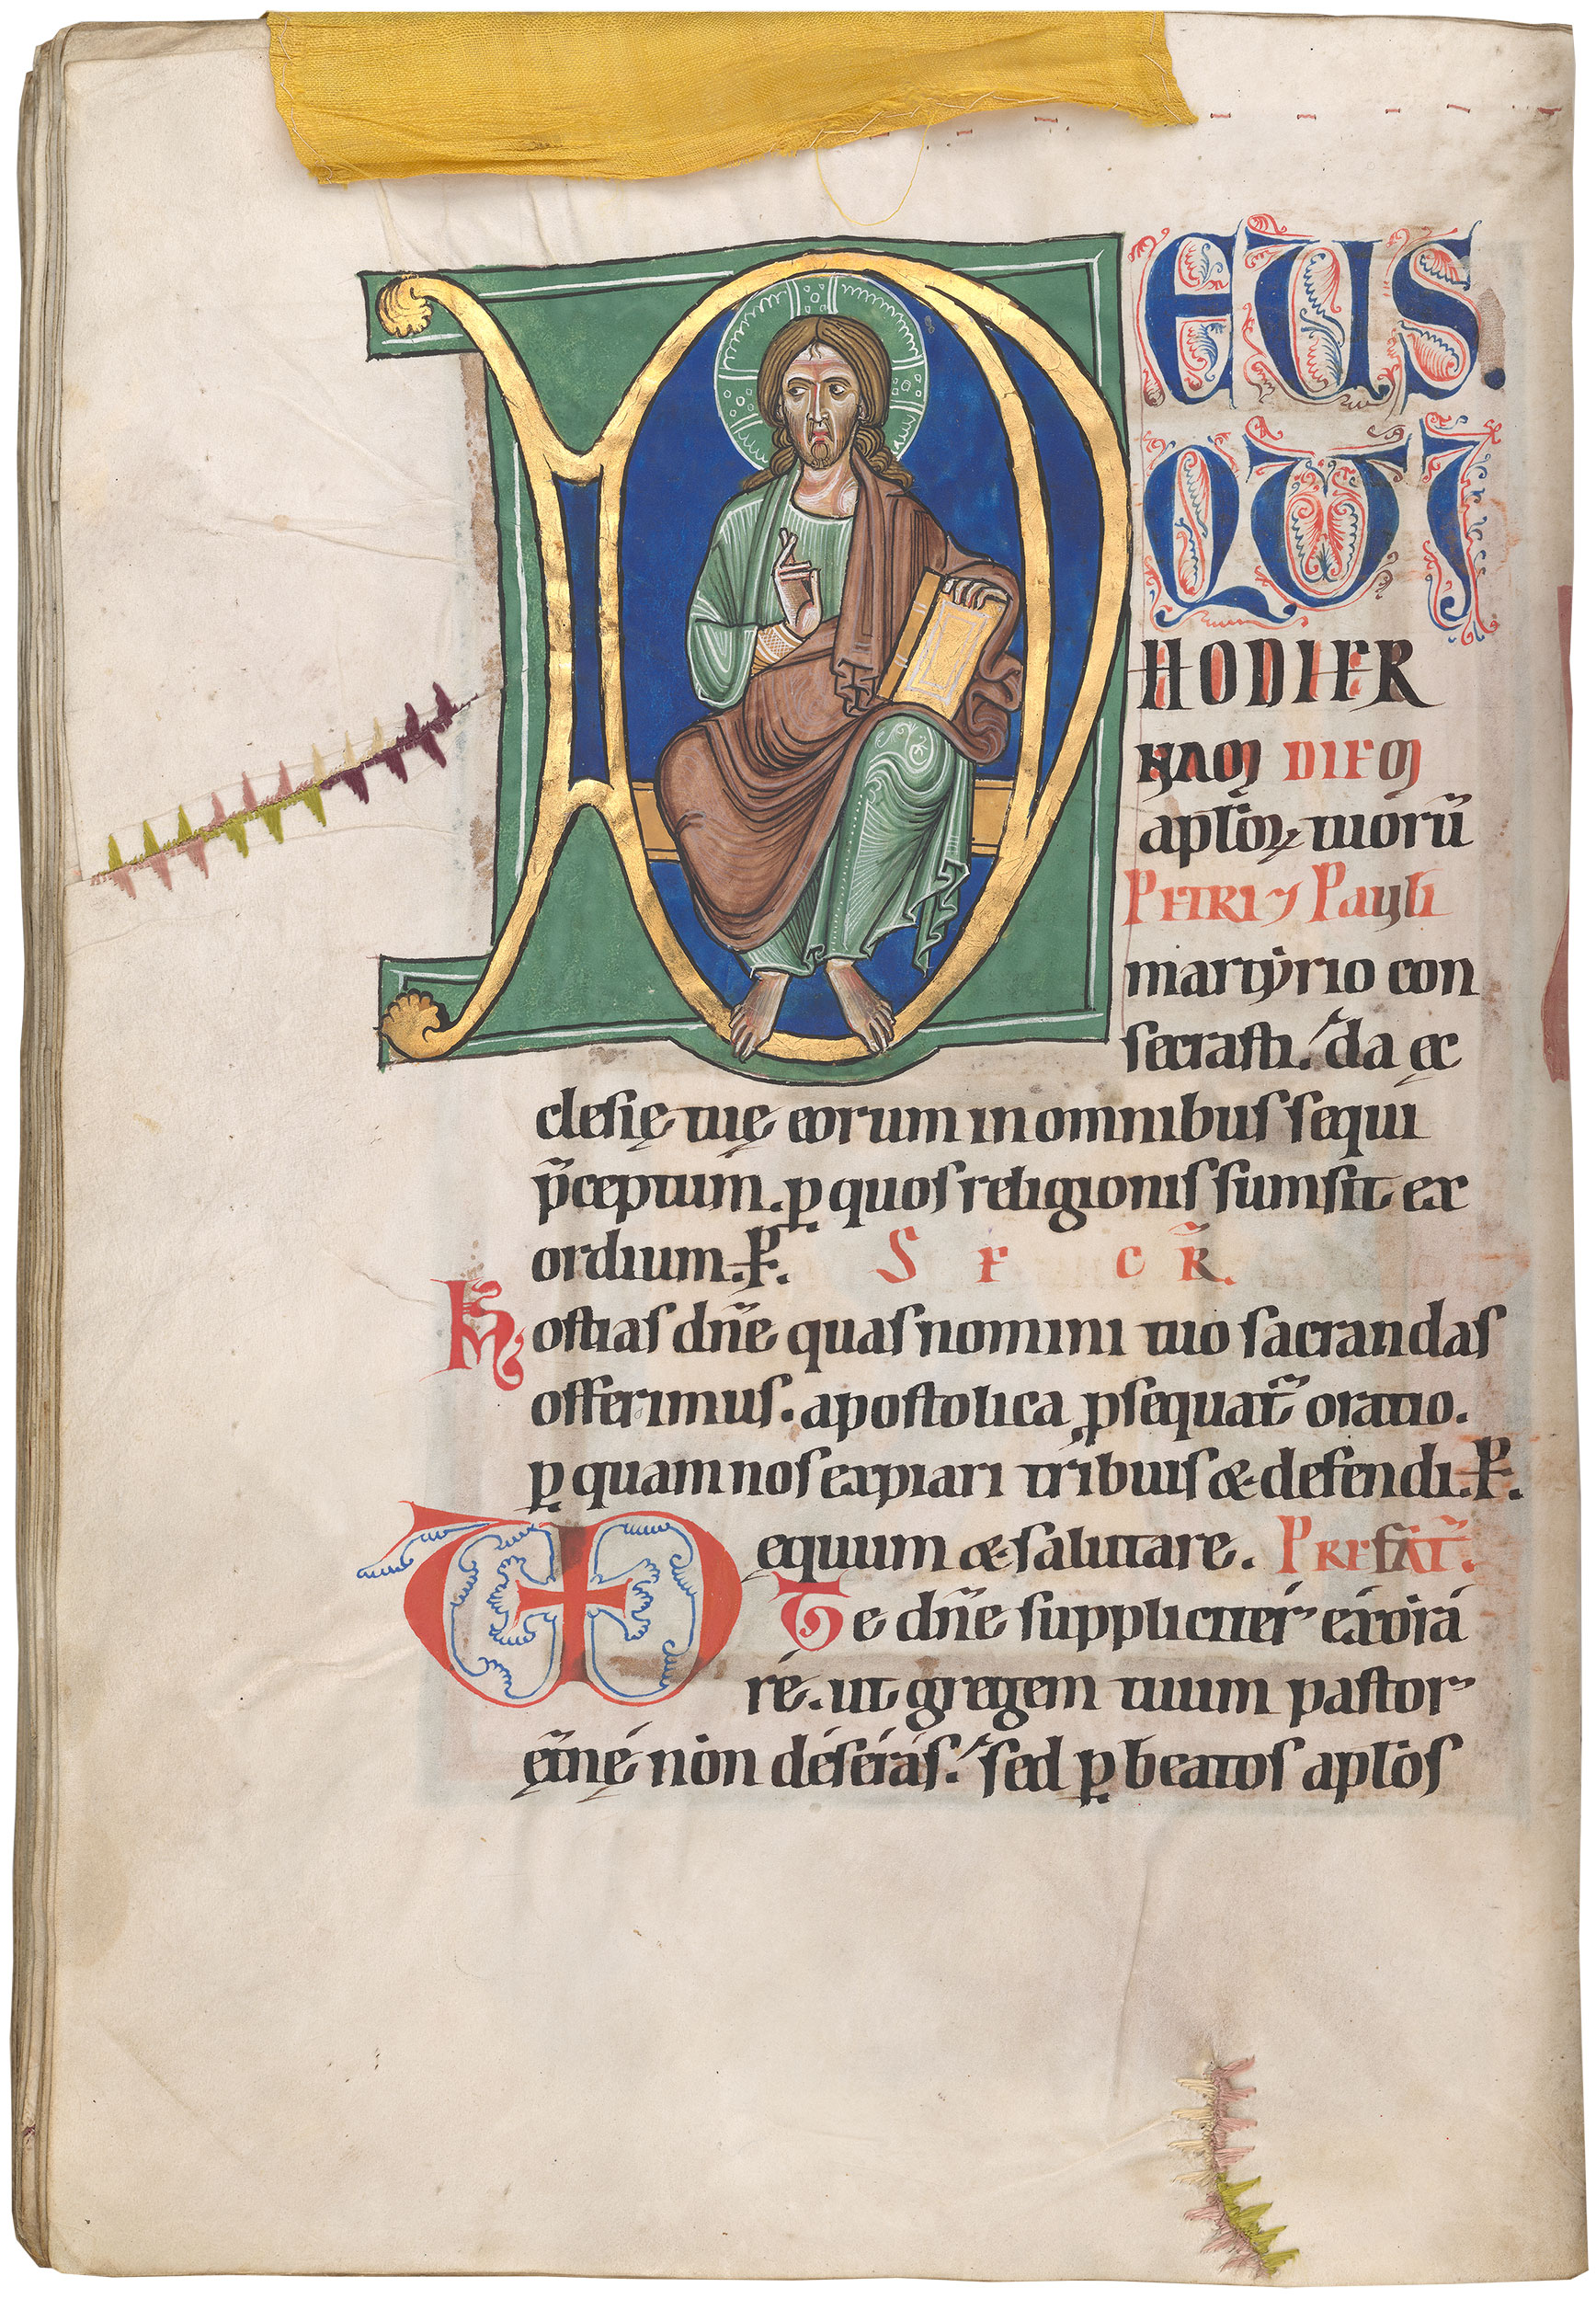 DEUS
QUI
HODIER
NAM DIEM
aplõꝝ tuorũ
PETRI ⁊ Pauli
martẏrio con
secrasti. da ęc
clesię tuę eorum in omnibus sequi
p̃ceptum. ꝑ quos religionis sumsit ex
ordium. P̱. S E C R̃.
Hostias dñe quas nomini tuo sacrandas
offerimus. apostolica ꝓsequat̃ oratio.
ꝑ quam nos expiari tribuis & defendi. P̱.
VD equum & salutare. PREFAT̃.
Te dñe suppliciter exora
re. ut gregem tuum pastor
ęt̃nę non deseras. sed ꝑ beatos aplõs